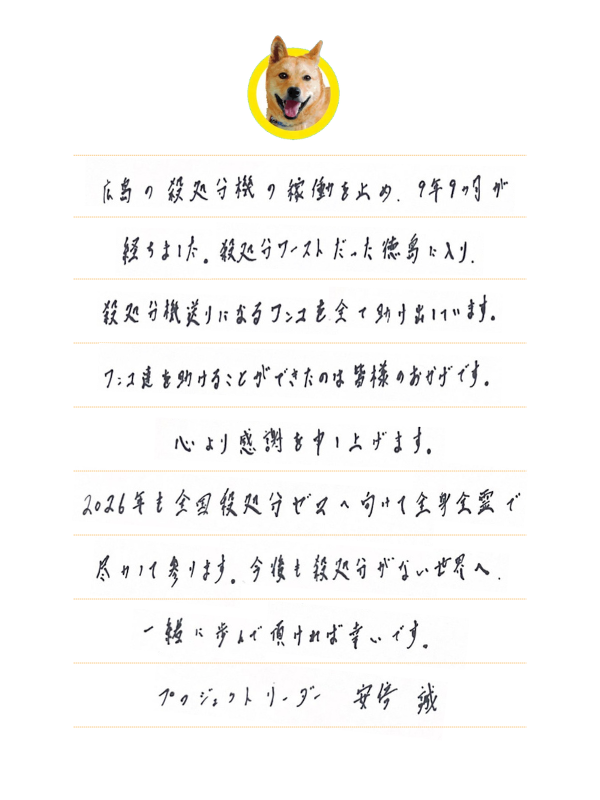 広島の殺処分機の稼働を止め、9年9ヶ月が
経ちました。殺処分ワーストだった徳島に入り、
殺処分機送りになるワンコを全て助け出しています。
ワンコ達を助けることができたのは皆様のおかげです。
心より感謝を申し上げます。
2026年も全国殺処分ゼロへ向けて全身全霊で
尽力して参ります。今後も殺処分がない世界へ、
一緒に歩んで頂ければ幸いです。
プロジェクトリーダー 安倍 誠